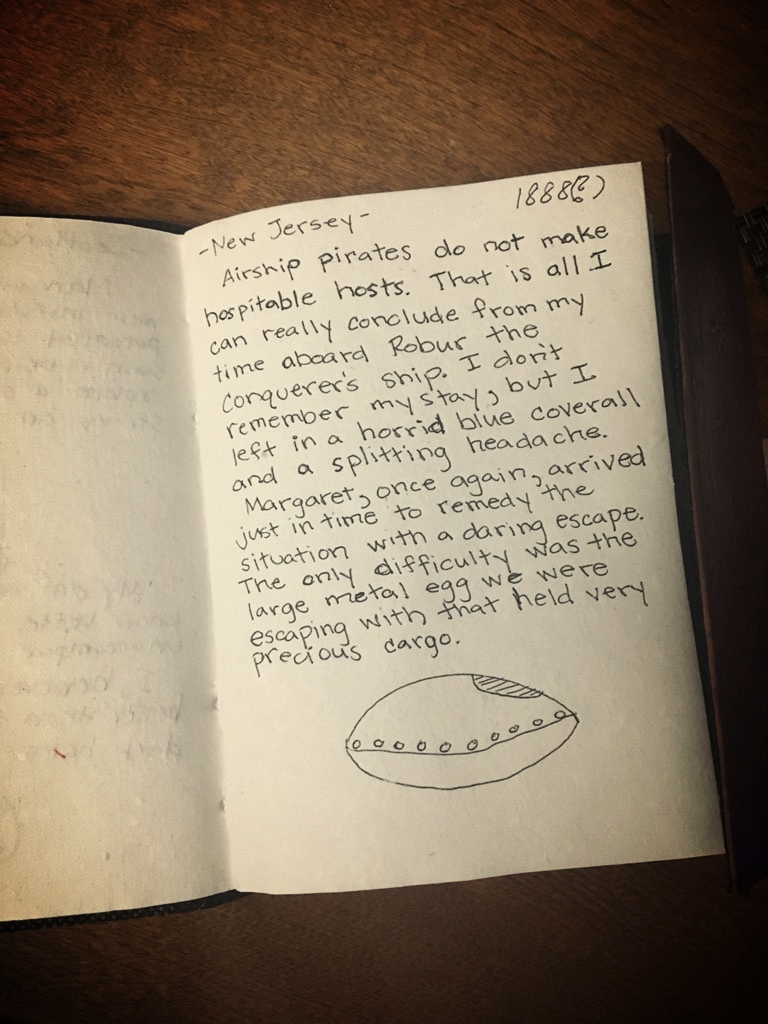 1888(?)
-New Jersey-
Airship pirates do not make
hospitable hosts. That is all I
can really conclude from my
time aboard Robur the
Conquerer's ship. I don't
remember my stay, but I
left in a horrid blue coverall
and a splitting headache.
Margaret, once again, arrived
just in time to remedy the
situation with a daring escape.
The only difficulty was the
large metal egg we were
escaping with that held very
precious cargo.